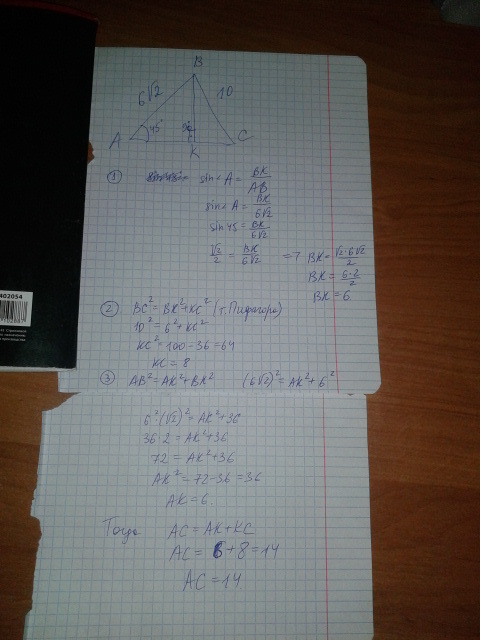 B
6√2
10
A
45°
90°
K
C
① sin<A = BK/AB
sin<A = BK/6√2
sin45 = BK/6√2
√2/2 = BK/6√2 => BK = √2·6√2/2
BK = 6·2/2
BK = 6
② BC² = BK²+KC² (т. Пифагора)
10² = 6²+KC²
KC² = 100-36 = 64
KC = 8
③ AB² = AK²+BK² (6√2)² = AK²+6²
6²·(√2)² = AK²+36
36·2 = AK²+36
72 = AK²+36
AK² = 72-36 = 36
AK = 6
Тогда AC = AK+KC
AC = 6+8 = 14
AC = 14
402054